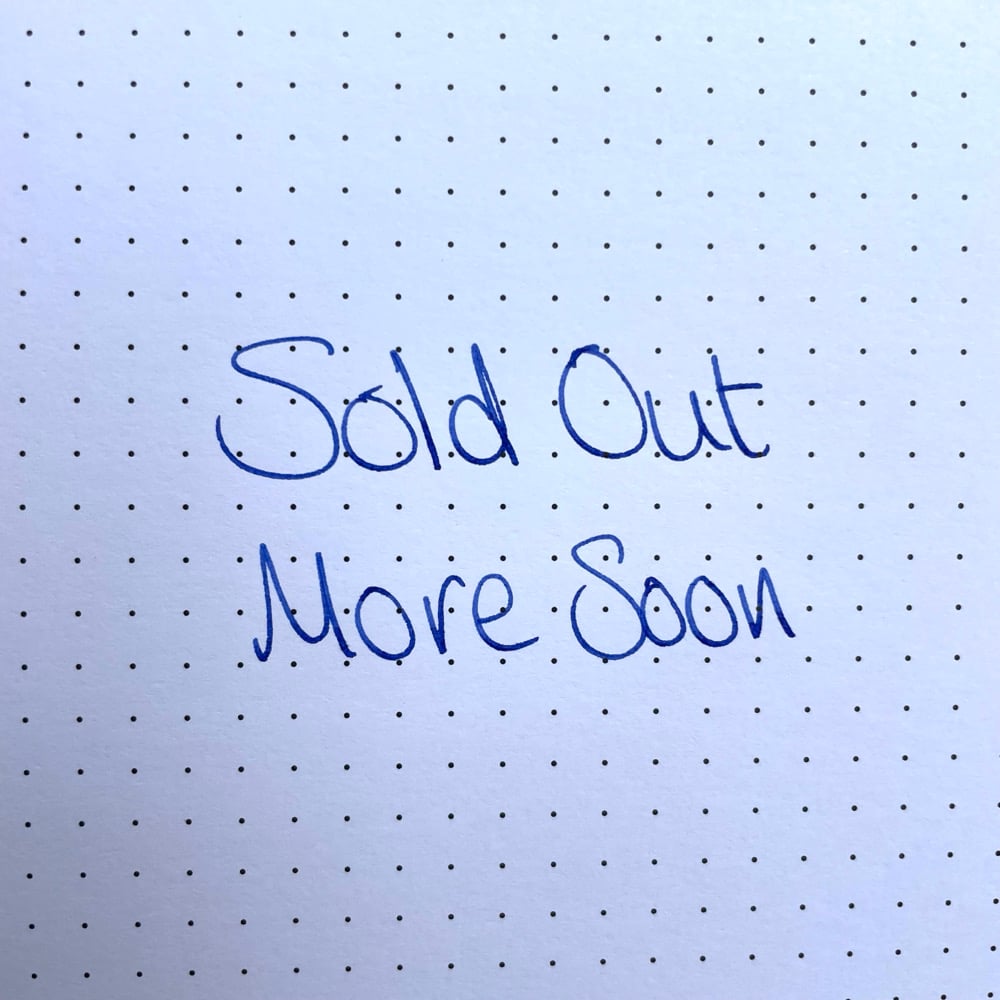 Sold Out
More Soon